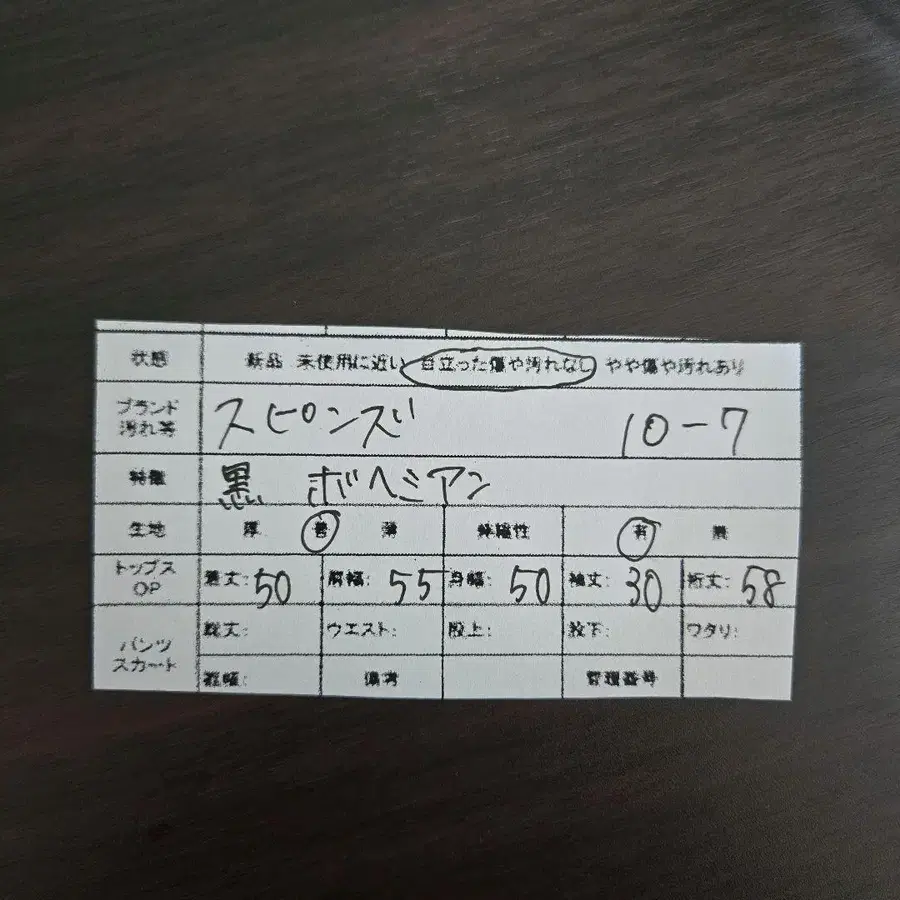 状態 新品 未使用に近い 目立った傷や汚れなし やや傷や汚れあり
ブランド
汚れ等
スピンズ 10-7
特徴 黒 ボヘミアン
生地 厚 普 薄 伸縮性 有 無
トップス
OP
着丈: 50 肩幅: 55 身幅: 50 袖丈: 30 裄丈: 58
パンツ
スカート
総丈: ウエスト: 股上: 股下: ワタリ:
裾幅: 備考 管理番号